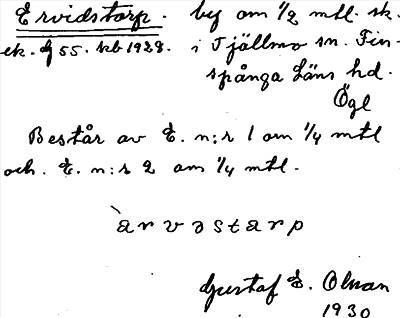 Ervidstorp. bef om 1/2 mtl. sk.
ek. bf 55. kb 1928. i Tjällmo sn. Fin-
spånga Läns hd.
Ögl
Består av E. n:r 1 om 1/4 mtl
och. E. n:r 2 om 1/4 mtl.
`arvəstarp
Gustaf E. Olman
1930